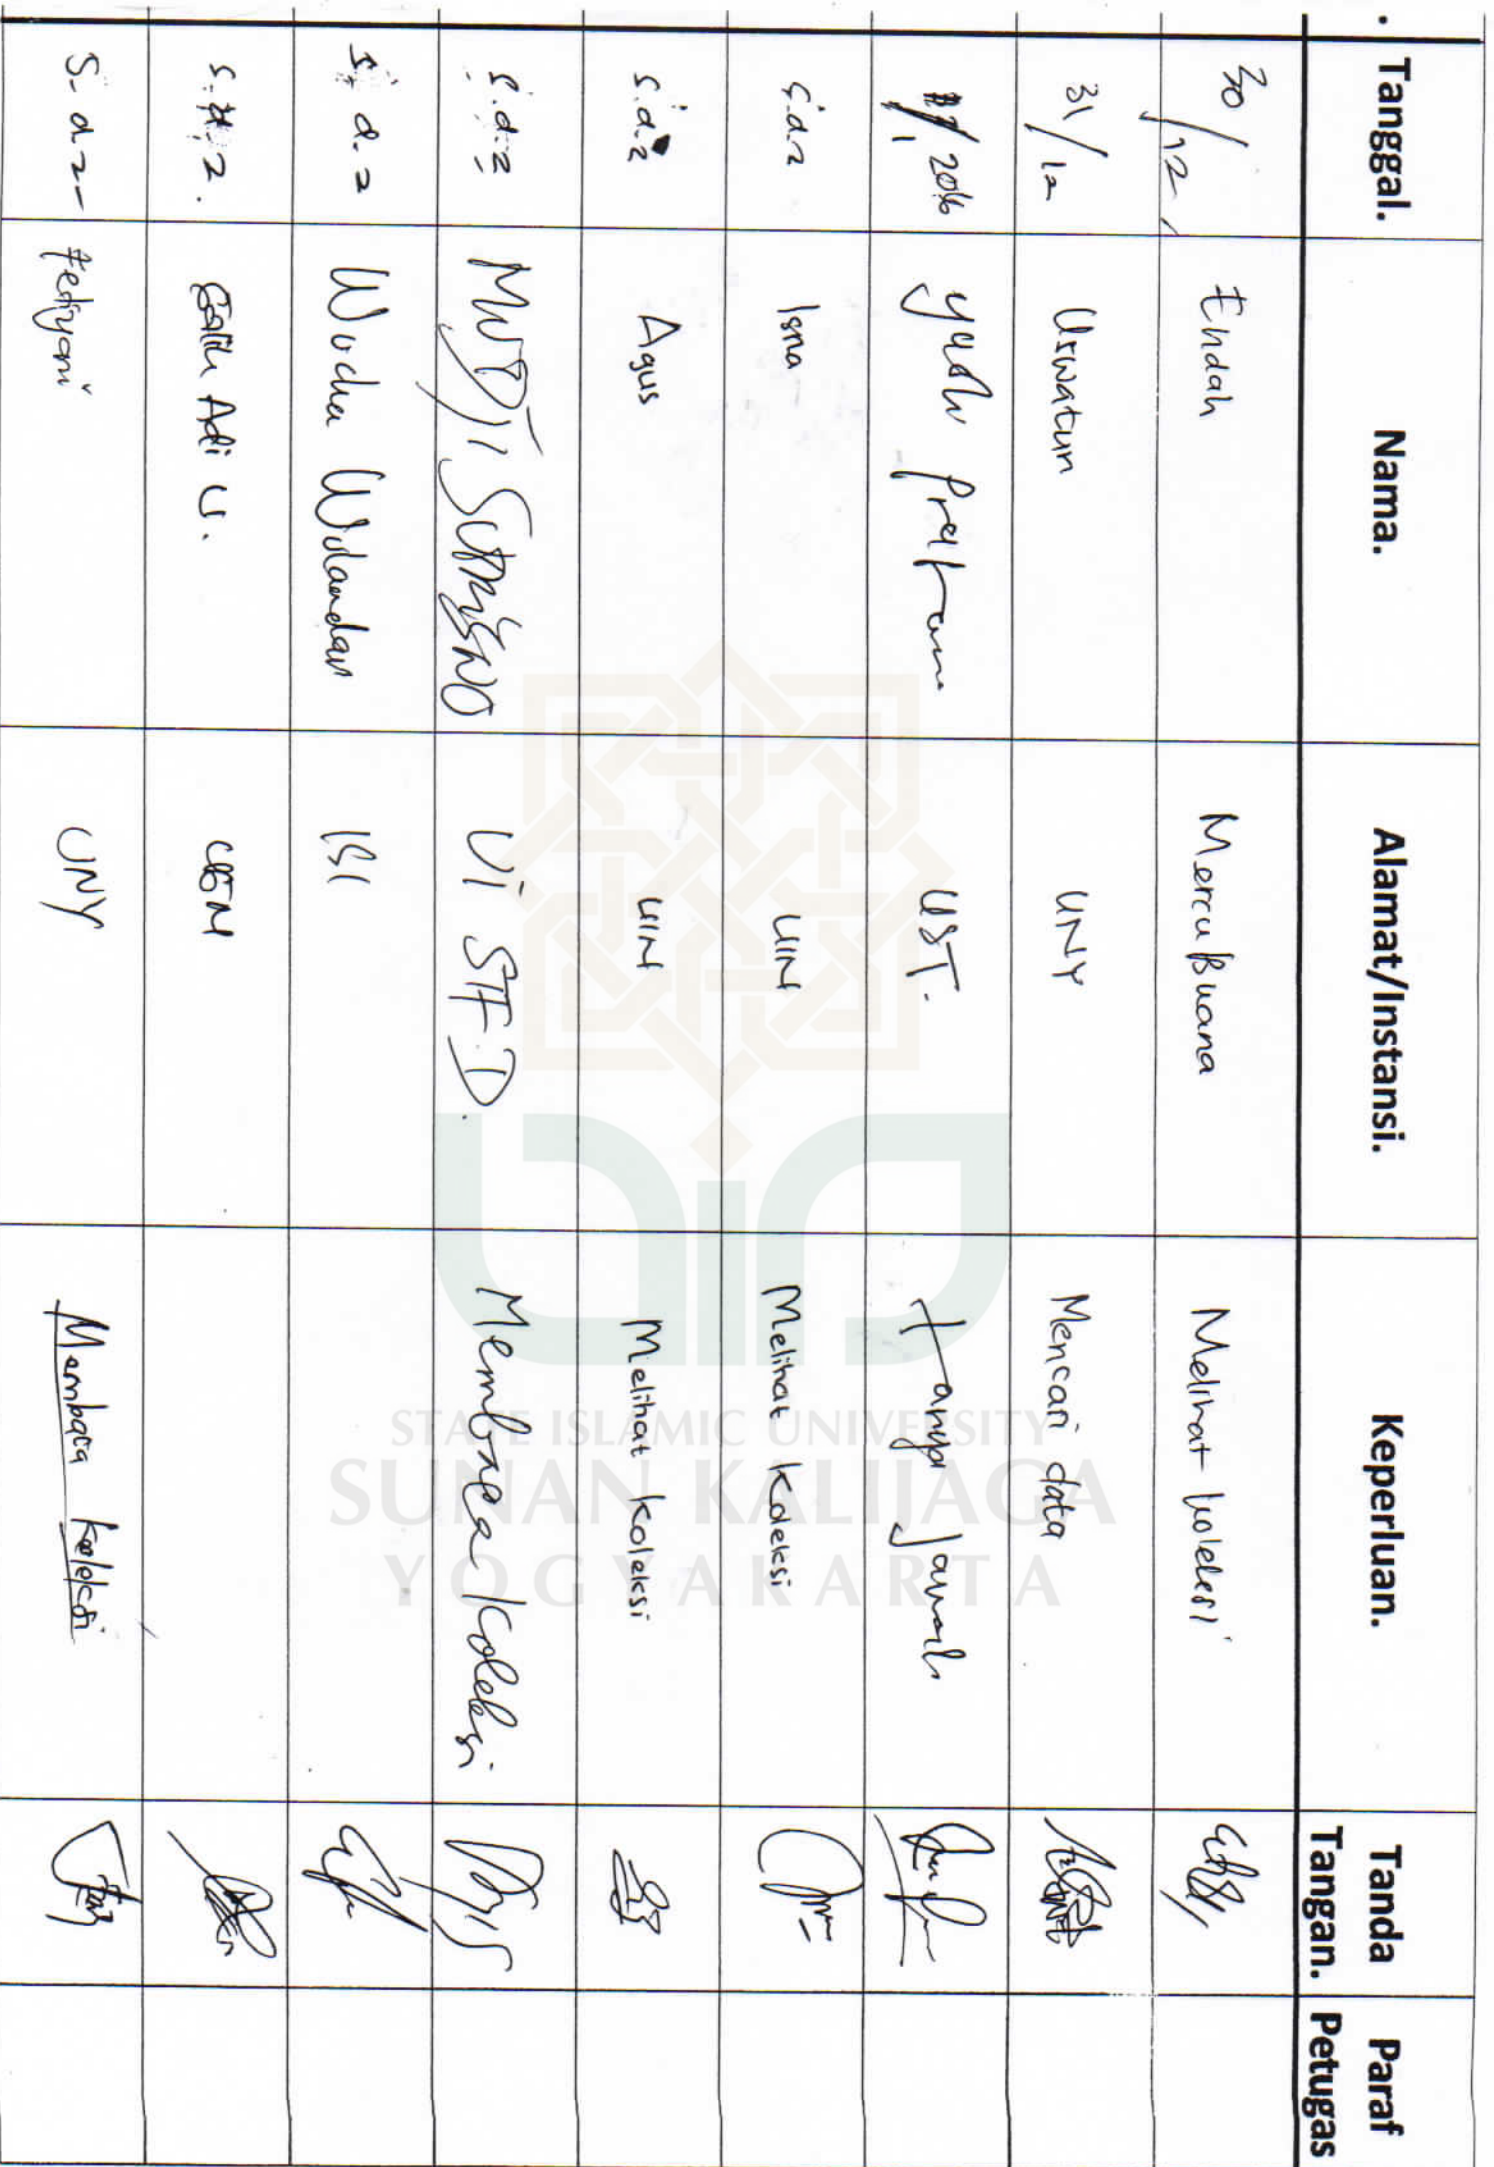 . Tanggal. Nama. Alamat/Instansi. Keperluan. Tanda Tangan. Paraf Petugas
30/12 Endah Mercu Buana Melihat koleksi
31/12 Uswatun UNY Mencari data
/1 2016 Yudhi Pratama UST. Tanya Jawab
s.d.a Isna UIN Melihat Koleksi
s.d.a Agus UIN Melihat Koleksi
s.d.a MUDJI SUTRISNO STF.D. Membaca Koleksi
s.d.a Wulandari ISI
s.d.a. Galih Adi U. UGM
S.d.a- Fediyani UNY Membaca koleksi
STATE ISLAMIC UNIVERSITY
SUNAN KALIJAGA
YOGYAKARTA